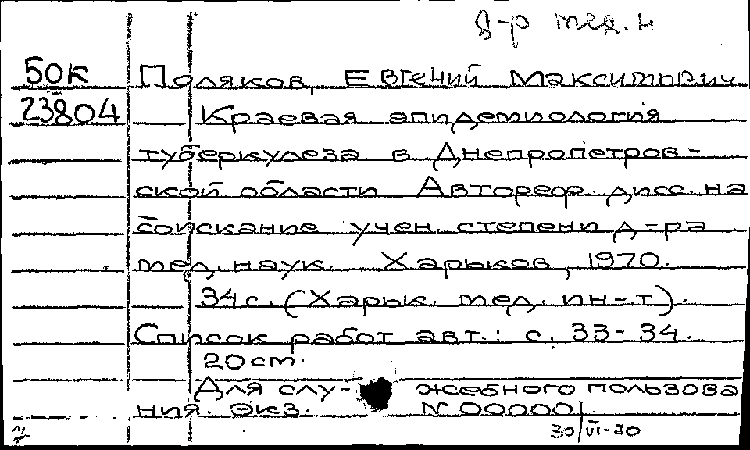 д-р мед. н
50к Поляков, Евгений Максимович
23804 Краевая эпидемиология
туберкулеза в Днепропетров-
ской области Автореф. дисс. на
соискание учен. степени д-ра
мед. наук. Харьков, 1970.
34 с. (Харьк. мед. ин-т).
Список работ авт.: с. 33-34.
20 см.
Для слу- жебного пользова
ния. Экз. N 00000
30/VI-80